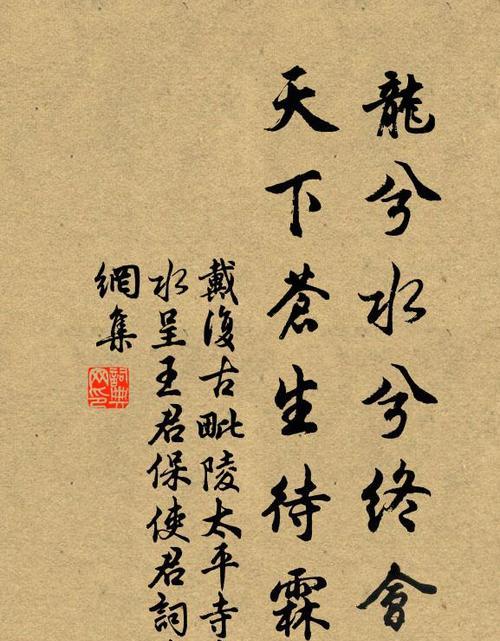 龍兮水兮終會
天下蒼生待霖
戴復古毗陵太平寺
水呈王君保使君詞
網集
詞典
网印